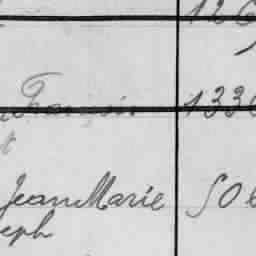 126
François 133
t
Jean Marie 506
eph